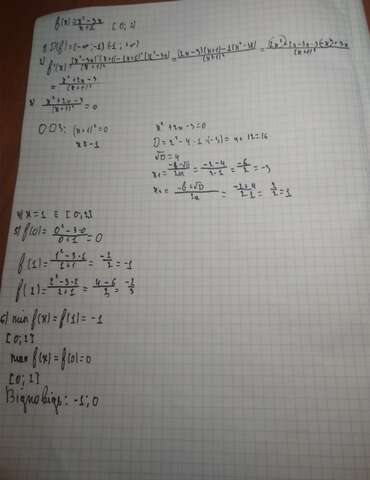 f(x) = x² - 3x / x+1   [0; 2]
1) D(f) = (-∞; -1) (-1; +∞)
2) f'(x) = (x²-3x)'(x+1) - (x+1)'(x²-3x) / (x+1)² = (2x-3)(x+1) - 1(x²-3x) / (x+1)² = 2x²+2x-3x-3-x²+3x / (x+1)²
= x²+2x-3 / (x+1)²
3) x²+2x-3 / (x+1)² = 0
ОДЗ: (x+1)² = 0
x ≠ -1
x² + 2x - 3 = 0
D = 2² - 4 · 1 · (-3) = 4 + 12 = 16
√D = 4
x₁ = -b-√D / 2a = -2-4 / 2·1 = -6 / 2 = -3
x₂ = -b+√D / 2a = -2+4 / 2·1 = 2 / 2 = 1
4) x = 1 ∈ [0; 2]
5) f(0) = 0²-3·0 / 0+1 = 0
f(1) = 1²-3·1 / 1+1 = -2 / 2 = -1
f(2) = 2²-3·2 / 2+1 = 4-6 / 3 = -2 / 3
6) min f(x) = f(1) = -1
[0; 2]
max f(x) = f(0) = 0
[0; 2]
Відповідь: -1; 0